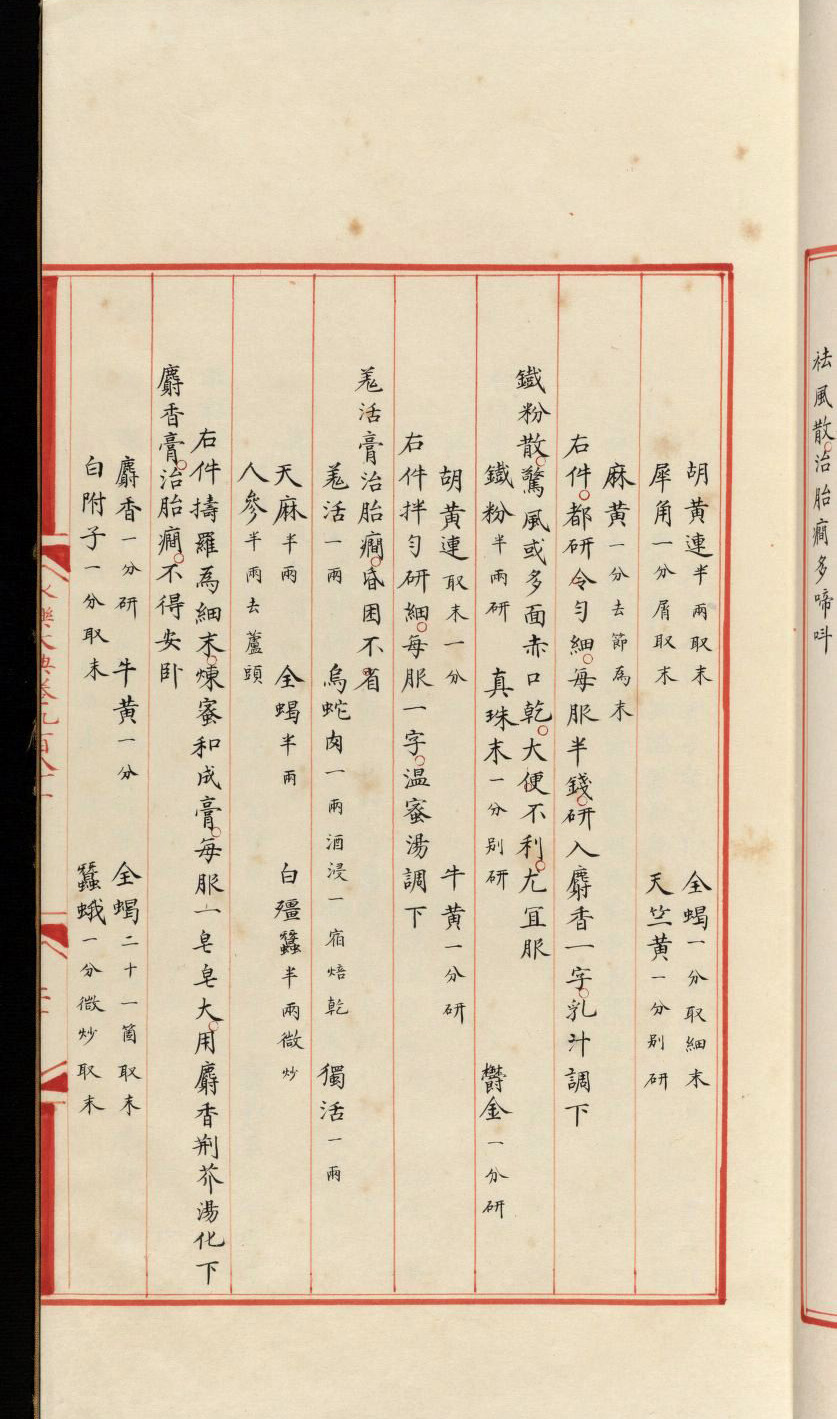 祛風散。治胎癇多啼呌
胡黄連半兩取末　全蝎一分取細末
犀角一分屑取末　天竺黄一分别研
麻黄一分去節爲末
右件。都研令勻細。每服半錢。研入麝香一字。乳汁調下
鐵粉散。驚風或多面赤口乾。大便不利。尤宜服
鐵粉半兩研　真珠末一分别研　欎金一分研
胡黄連取末一分　牛黄一分研
右件拌勻研細。每服一字。温蜜湯調下
羗活膏治胎癇。昏困不省
羗活一兩　烏蛇肉一兩酒浸一宿焙乾　獨活一兩
天麻半兩　全蝎半兩　白殭蠶半兩微炒
人參半兩去蘆頭
右件擣羅爲細末。煉蜜和成膏。每服一皂皂大。用麝香荆芥湯化下
麝香膏。治胎癇。不得安卧
麝香一分研　牛黄一分　全蝎二十一箇取末
白附子一分取末　蠶蛾一分微炒取末
樂大典卷九百八十一